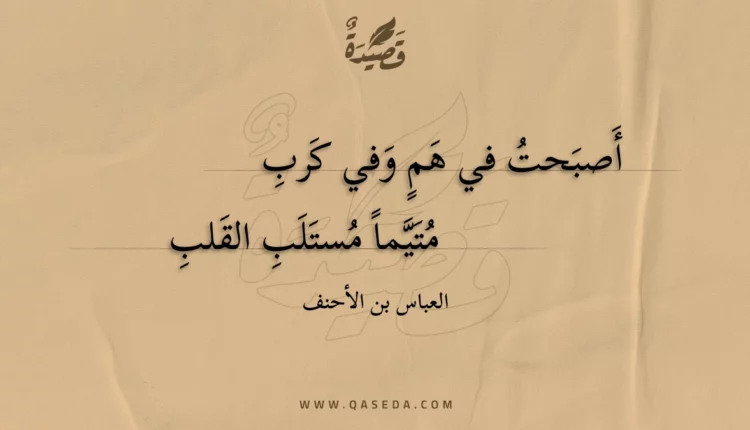 قَصِيْدَةٌ
أَصبَحتُ في هَمٍ وَفي كَربِ
مُتَيَّماً مُستَلَبِ القَلبِ
العباس بن الأحنف
WWW.QASEDA.COM